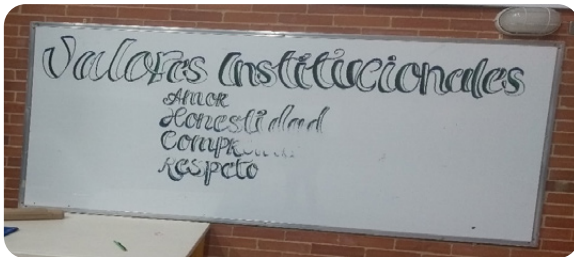 Valores Institucionales
Amor
Honestidad
Respeto